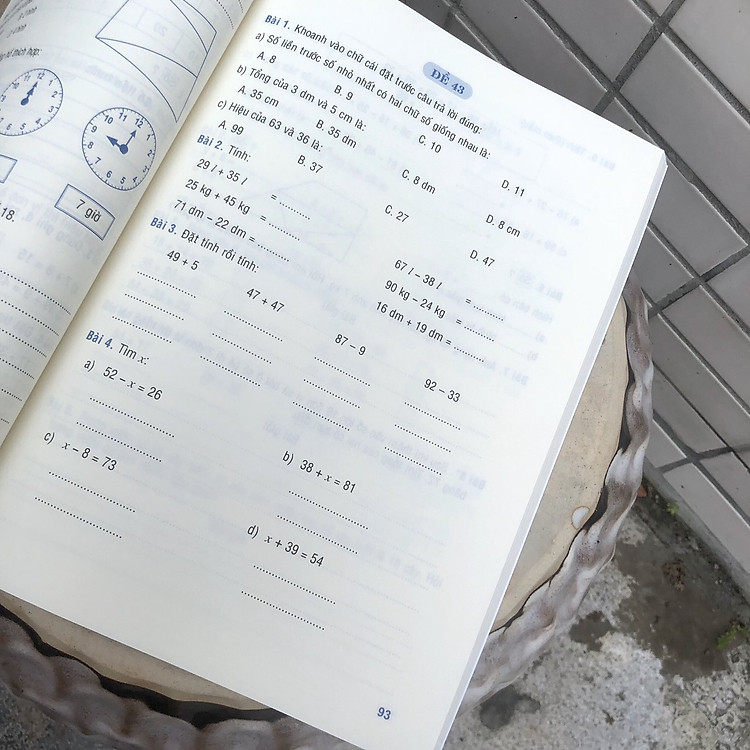 7 giờ
18.
ĐỀ 43
Bài 1. Khoanh vào chữ cái đặt trước câu trả lời đúng:
a) Số liền trước số nhỏ nhất có hai chữ số giống nhau là:
A. 8 B. 9 C. 10 D. 11
b) Tổng của 3 dm và 5 cm là:
A. 35 cm B. 35 dm C. 8 dm D. 8 cm
c) Hiệu của 63 và 36 là:
A. 99 B. 37 C. 27 D. 47
Bài 2. Tính:
29 l + 35 l = ......... 67 l − 38 l = .........
25 kg + 45 kg = ......... 90 kg − 24 kg = .........
71 dm − 22 dm = ......... 16 dm + 19 dm = .........
Bài 3. Đặt tính rồi tính:
49 + 5 47 + 47 87 − 9 92 − 33
Bài 4. Tìm x:
a) 52 − x = 26 b) 38 + x = 81
c) x − 8 = 73 d) x + 39 = 54
93